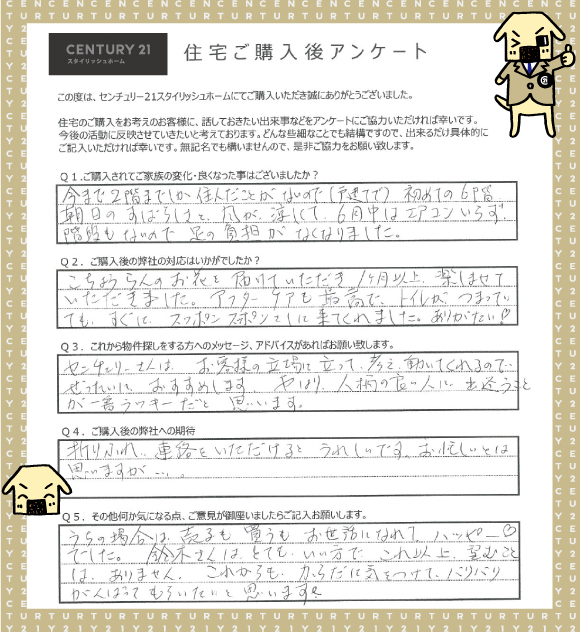 CENTURY 21
スタイリッシュホーム
住宅ご購入後アンケート
この度は、センチュリー21スタイリッシュホームにてご購入いただき誠にありがとうございました。
住宅のご購入をお考えのお客様に、話しておきたい出来事などをアンケートにご協力いただければ幸いです。
今後の活動に反映させていきたいと考えております。どんな些細なことでも結構ですので、出来るだけ具体的に
ご記入いただければ幸いです。無記名でも構いませんので、是非ご協力をお願い致します。
Q1.ご購入されてご家族の変化・良くなった事はございましたか？
今まで2階までしか住んだことがないので(戸建てで) 初めての6階
朝日のすばらしさと、風が、涼しくて、6月中はエアコンいらず、
階段もないので 足の負担が なくなりました。
Q2．ご購入後の弊社の対応はいかがでしたか？
こちょうらんのお花を届けていただき1ヶ月以上、楽しませて
いただきました。アフターケアも最高で、トイレがつまってい
ても、すぐに、スッポンスッポンしに来てくれました。ありがたい!
Q3．これから物件探しをする方へのメッセージ、アドバイスがあればお願い致します。
センチュリーさんは、お客様の立場に立って、考え、動いてくれるので、
ぜったいに、おすすめします。やはり、人柄の良い人に 出逢うこと
が一番ラッキーだと 思います。
Q4．ご購入後の弊社への期待
折りふれ、連絡をいただけると うれしいです。お忙しいとは
思いますが・・・、
Q5．その他何か気になる点、ご意見が御座いましたらご記入お願いします。
うちの場合は、売るも 買うも お世話になれて、ハッピー♡
でした。鈴木さんは、とても、いい方で、これ以上、望むこと
は、ありません。これからも、からだに気をつけて、バリバリ
がんばってもらいたいと思います。